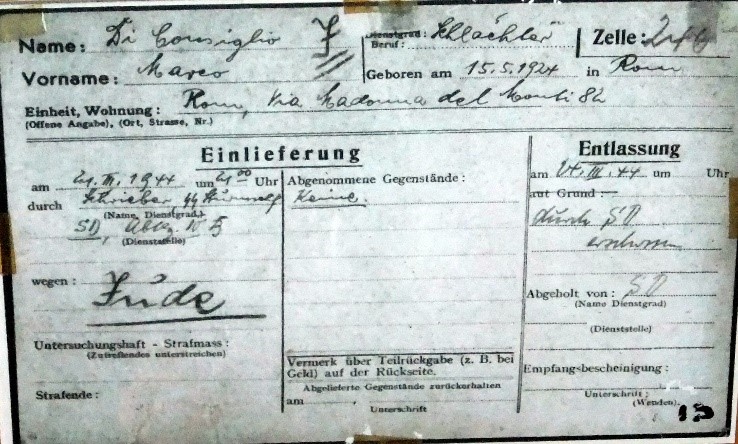 Name: Di Consiglio
Dienstgrad: Beruf: Schlächter
Zelle: 246
Vorname: Marco
Geboren am 15.5.1924 in Rom
Einheit, Wohnung: Rom, Via Madonna del Monti 82
(Offene Angabe), (Ort, Strasse, Nr.)
Einlieferung
am 21.III.1944 um 21 00 Uhr
durch Schrieber SS
(Name, Dienstgrad)
SD,
(Dienststelle)
wegen: Jude
Untersuchungshaft - Strafmass:
(Zutreffendes unterstreichen)
Strafende:
Abgenommene Gegenstände:
Keine.
Vermerk über Teilrückgabe (z. B. bei
Geld) auf der Rückseite.
Abgelieferte Gegenstände zurückerhalten
am
Unterschrift
Entlassung
am 24.III.44 um Uhr
auf Grund:
durch SD
erschossen
Abgeholt von: SD
(Name Dienstgrad)
(Dienststelle)
Empfangsbescheinigung:
Unterschrift:
(Wenden).